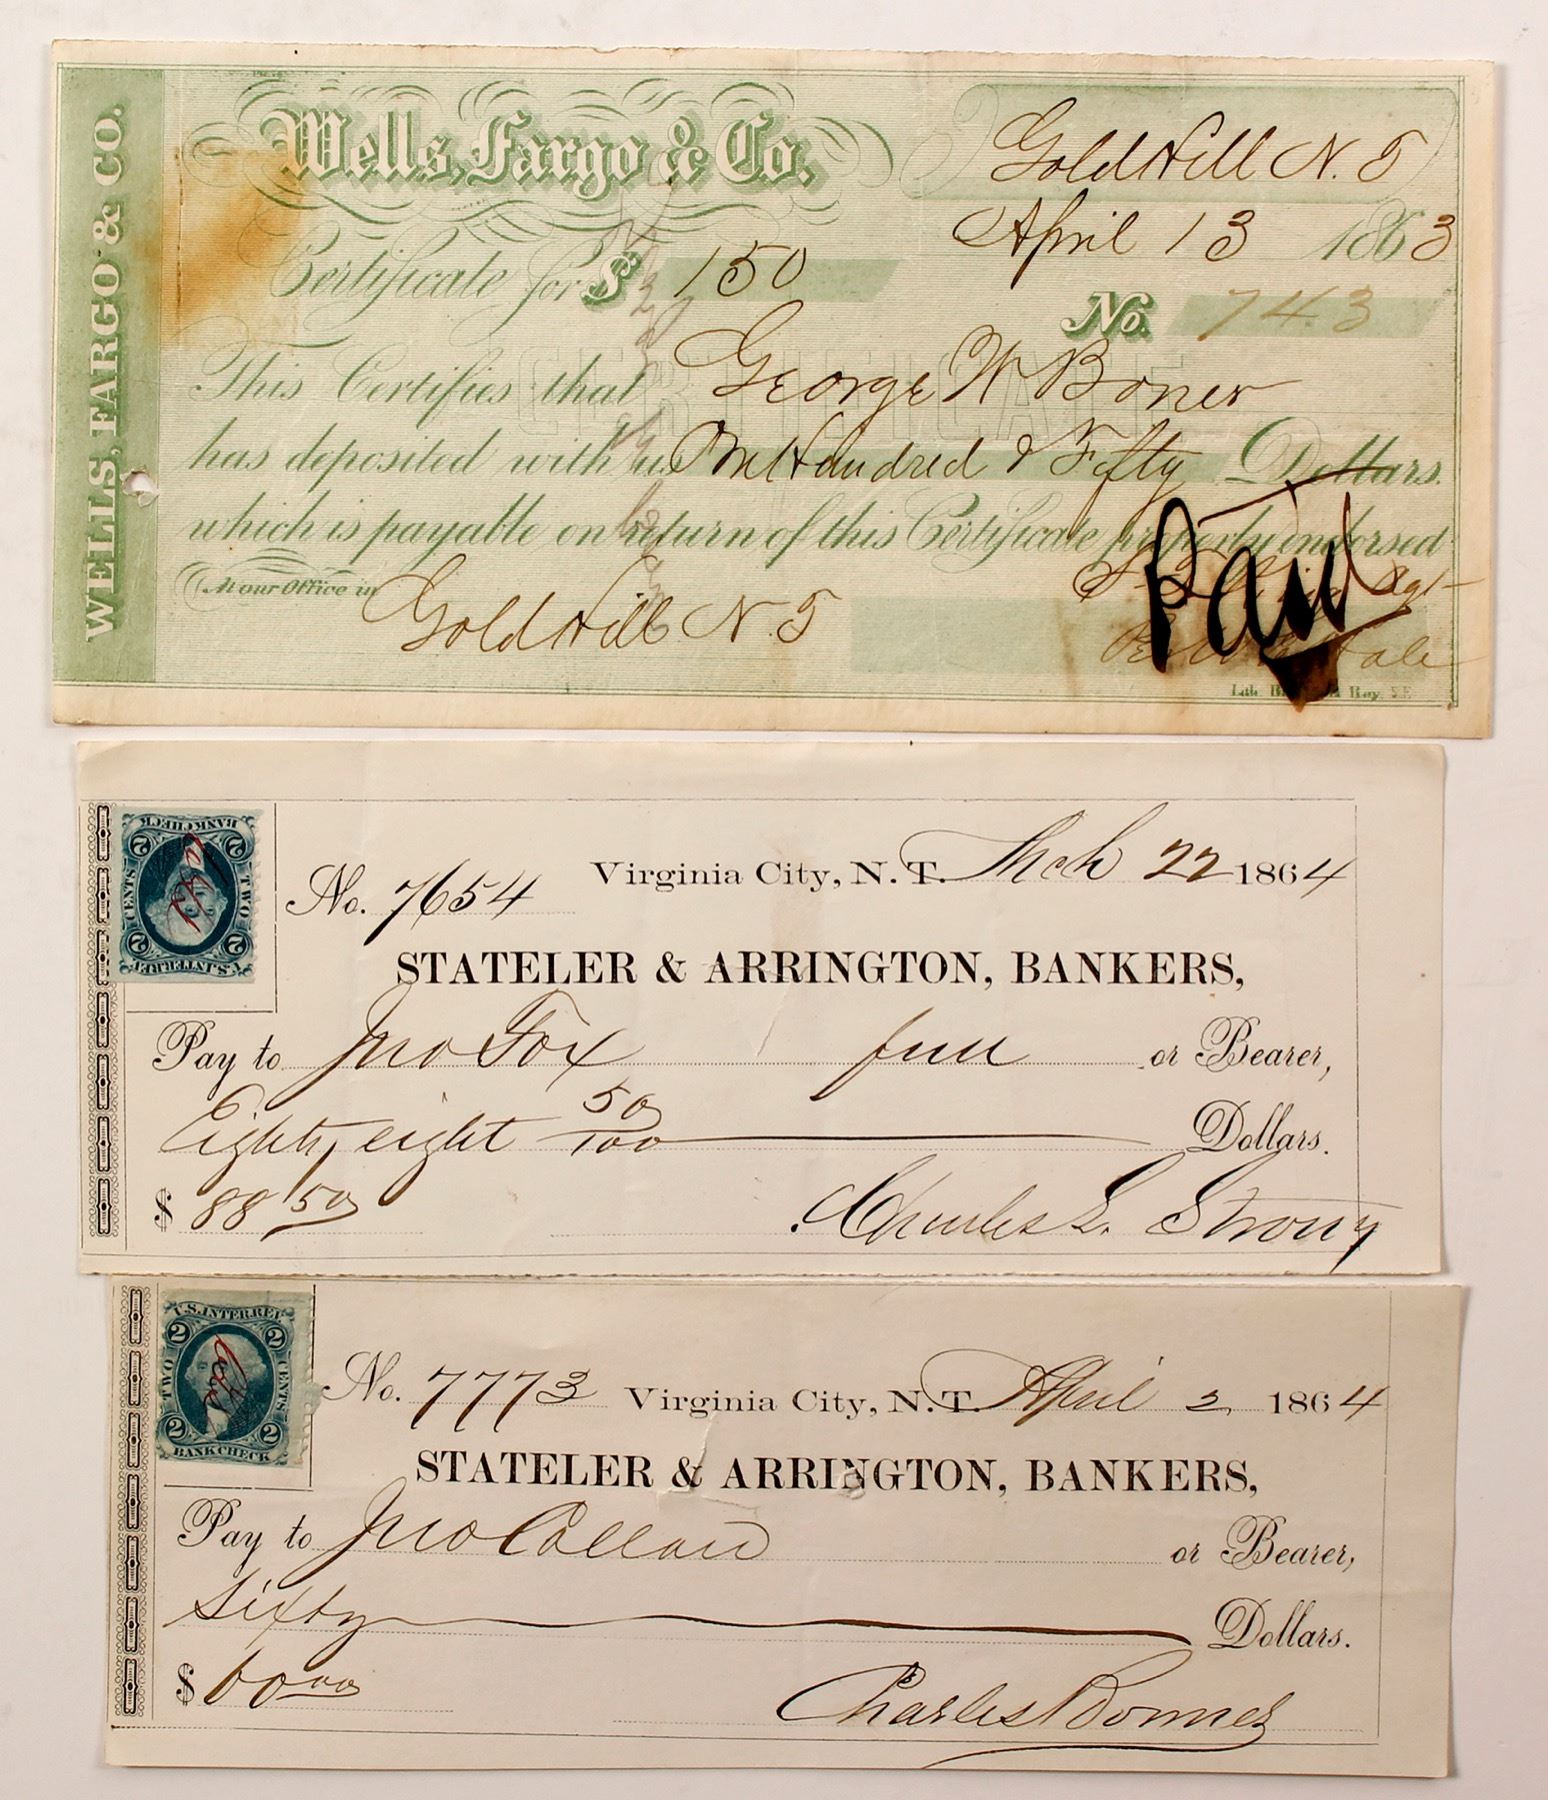 WELLS, FARGO & CO.
Wells, Fargo & Co.
Gold Hill N. T
April 13 1863
Certificate for $ 150
No. 743
CERTIFICATE
This Certifies that George W Boner
has deposited with us One Hundred & Fifty Dollars.
which is payable on return of this Certificate properly endorsed
At our Office in Gold Hill N. T
Agt
Paid
Hale
Lith.
Ray. S.F.
U.S. INTER. REV.
2 2
TWO CENTS
2 2
BANK CHECK
No. 7654 Virginia City, N. T. Mch 22 1864
STATELER & ARRINGTON, BANKERS,
Pay to Jno Fox or Bearer,
Eighty eight 50/100 Dollars.
$ 88 50
Charles L. Strong
U.S. INTER. REV.
2 2
TWO CENTS
2 2
BANK CHECK
No. 7773 Virginia City, N. T. April 2 1864
STATELER & ARRINGTON, BANKERS,
Pay to Jno or Bearer,
Sixty Dollars.
$ 60 00
Charles Bonner